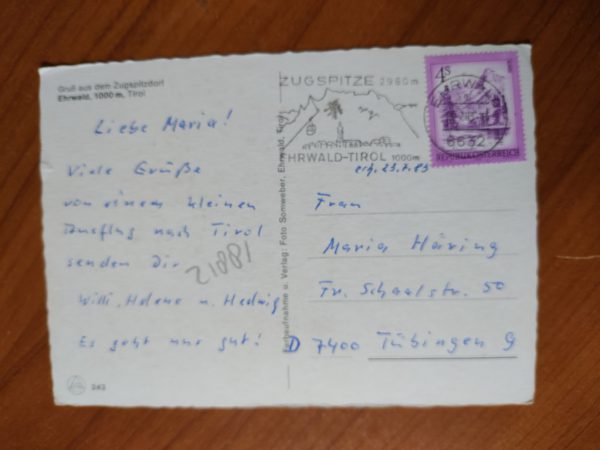 Gruß aus dem Zugspitzdorf
Ehrwald, 1000 m, Tirol
Liebe Maria!
Viele Grüße
von einem kleinen
Ausflug nach Tirol
senden Dir
Willi, Helene u. Hedwig
Es geht uns gut!
243
21881
Farbaufnahme u. Verlag: Foto Somweber, Ehrwald, Tirol
ZUGSPITZE 2960m
EHRWALD-TIROL 1000m
EHRWALD
6632
4S
REPUBLIK ÖSTERREICH
erh. 23.7.83
Frau
Maria Häring
Fr. Schaalstr. 50
D 7400 Tübingen 9